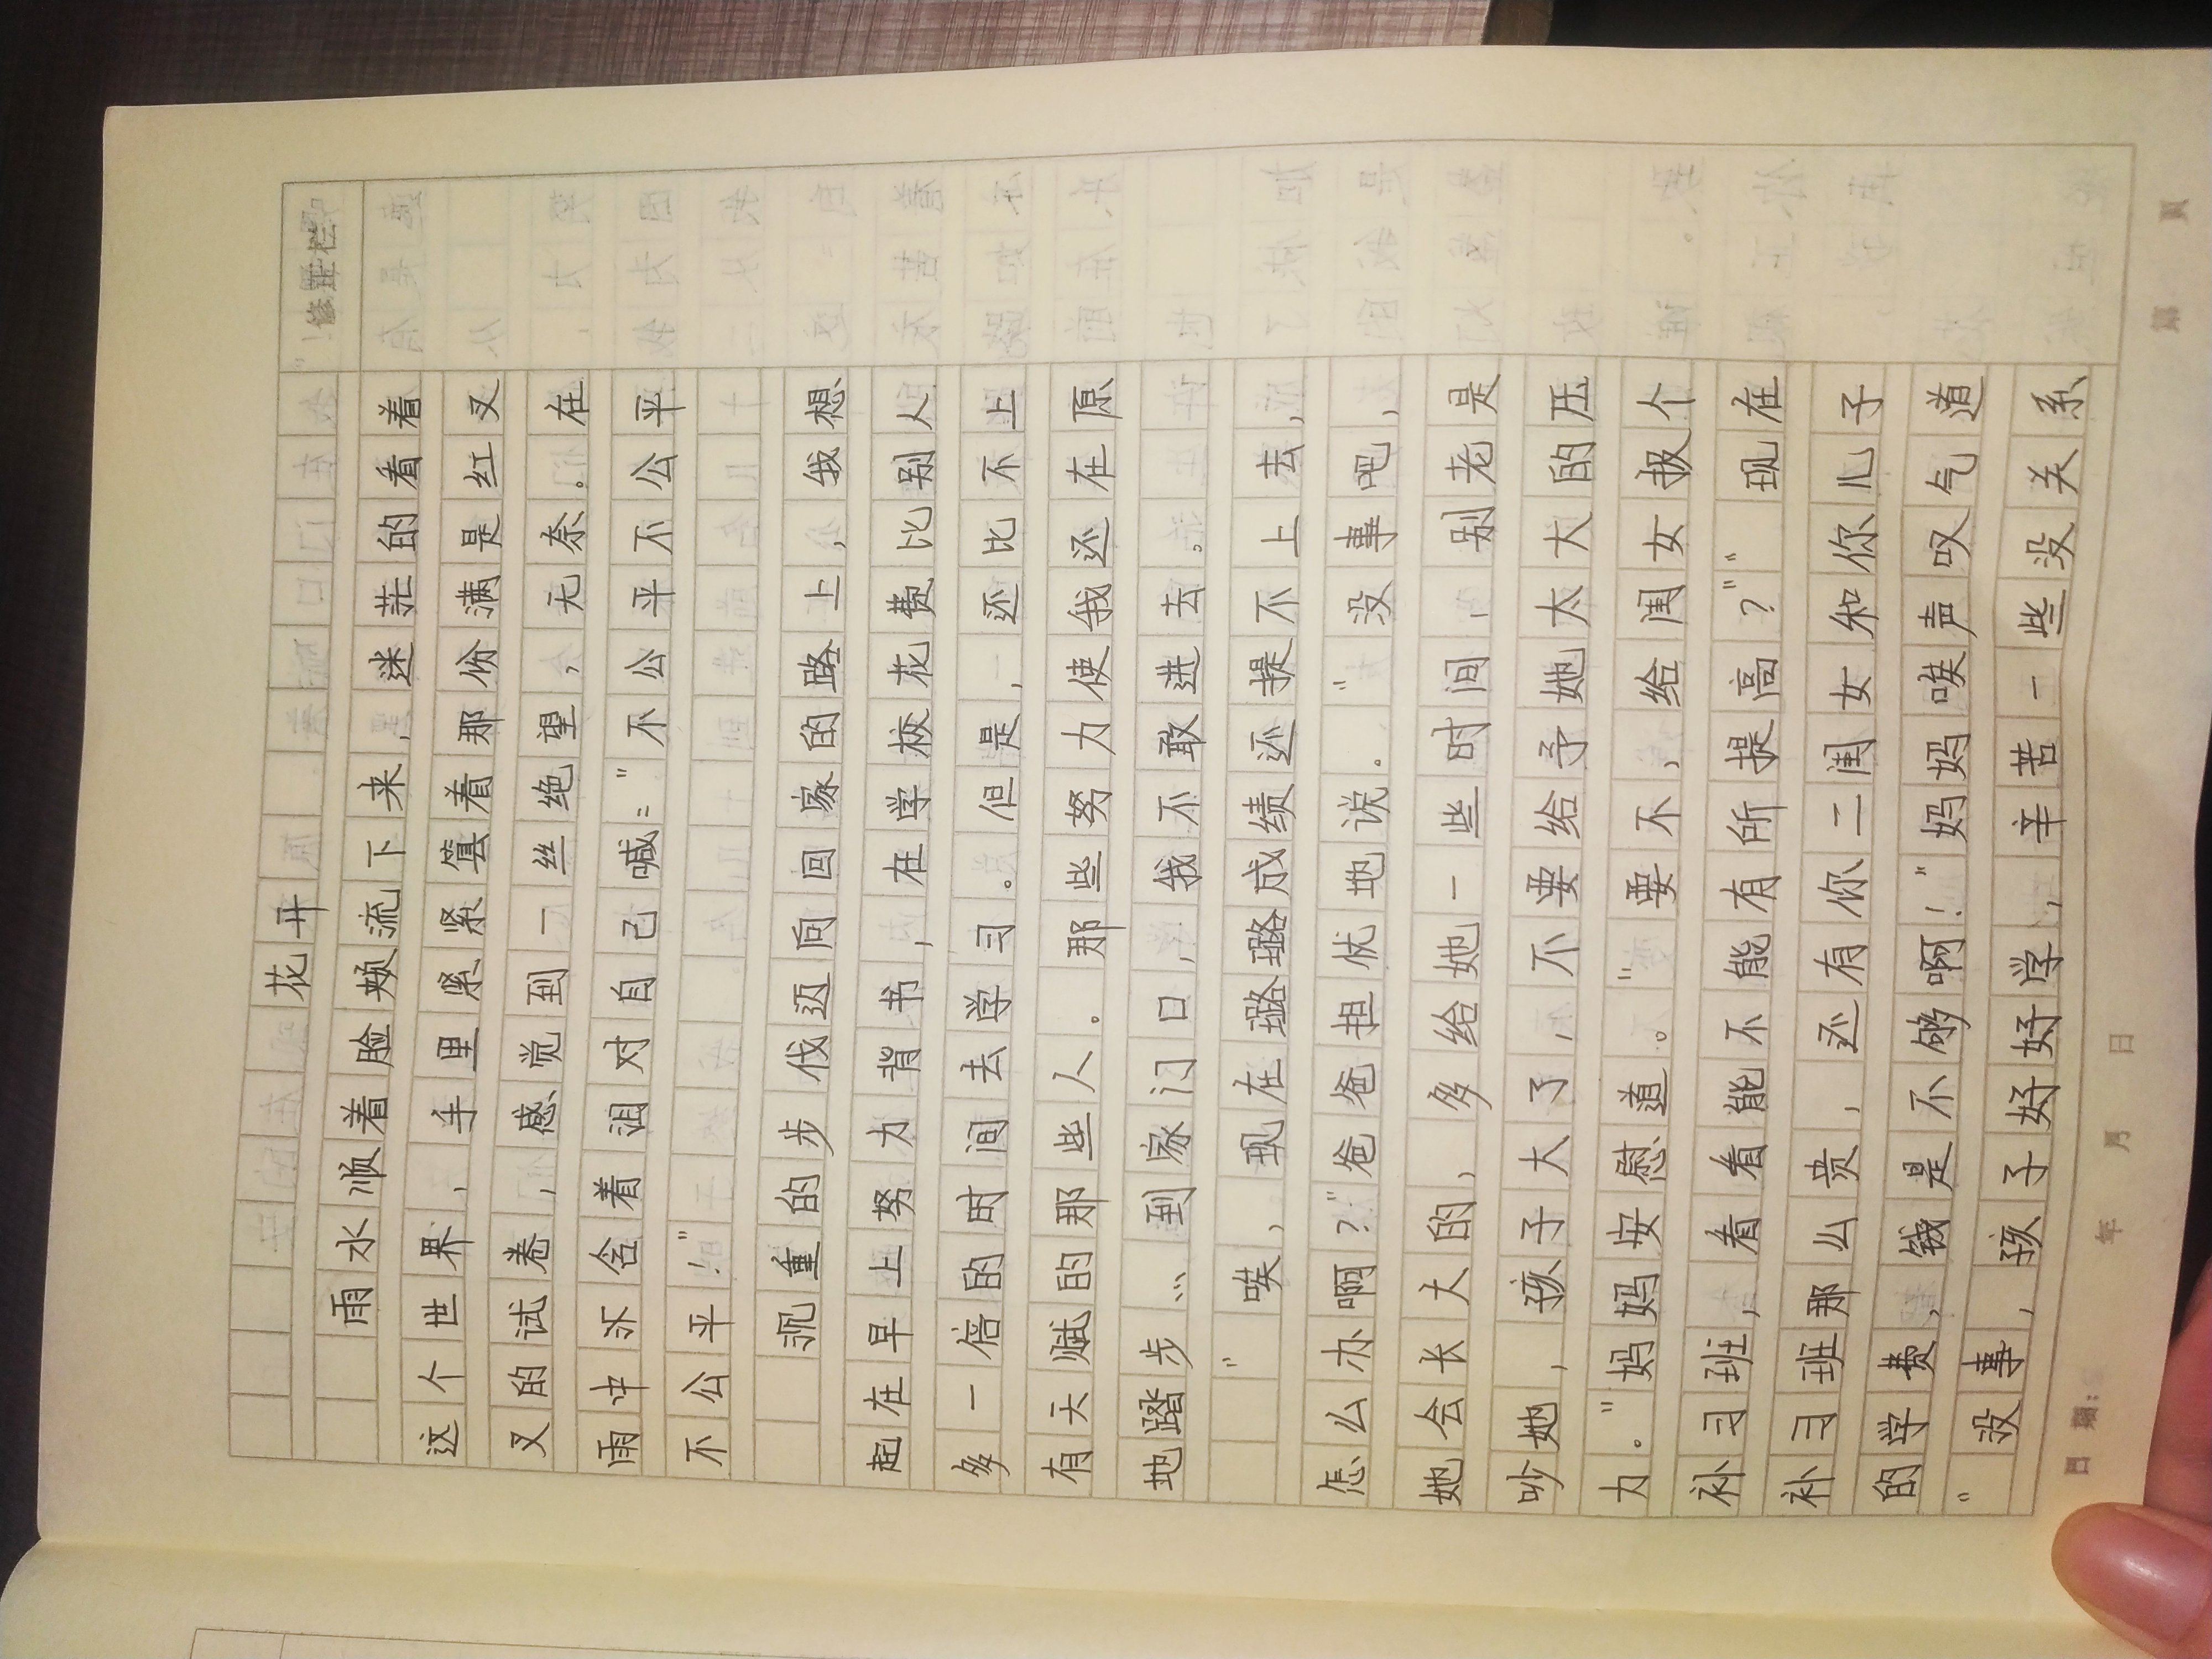 修正栏
花开
雨水顺着脸颊流下来,迷茫的看着
这个世界,手里紧紧篡着那份满是红叉
叉的试卷,感觉到一丝绝望,无奈。在
雨中含着泪对自己喊:"不公平不公平
不公平!"
沉重的步伐迈向回家的路上,我想
起在早上努力背书,在学校花费比别人
多一倍的时间去学习。但是,还比不上
有天赋的那些人。那些努力使我还在原
地踏步…到家门口,我不敢进去。
"唉,现在璐璐成绩还提不上去,
怎么办啊?"爸爸担忧地说。"没事吧,
她会长大的,多给她一些时间,别老是
吵她,孩子大了,不要给予她太大的压
力。"妈妈安慰道。"要不,给闺女报个
补习班,看看能不能有所提高?""现在
补习班那么贵,还有你二闺女和你儿子
的学费,钱是不够啊!"妈妈唉声叹气道
"没事,孩子好好学,辛苦一些没关系
日期: 年 月 日
第 页